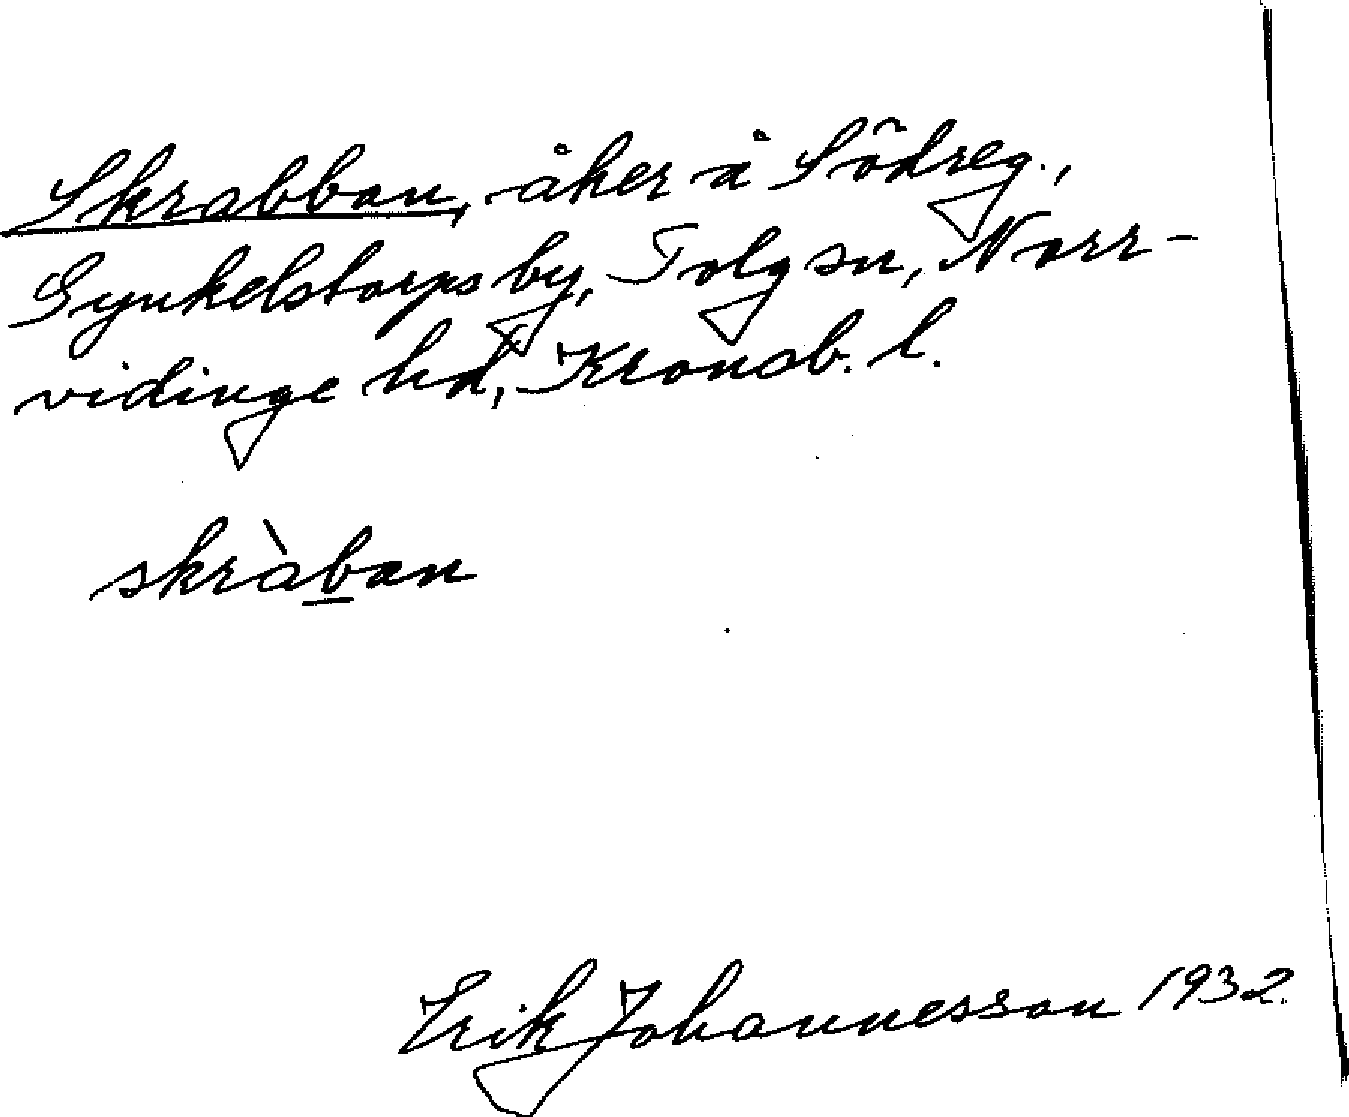 Skrabban, åker å Södreg.,
Synkelstorps by, Tolg sn, Norr-
vidinge hd, Kronob. l.
skràban
Erik Johannesson 1932.